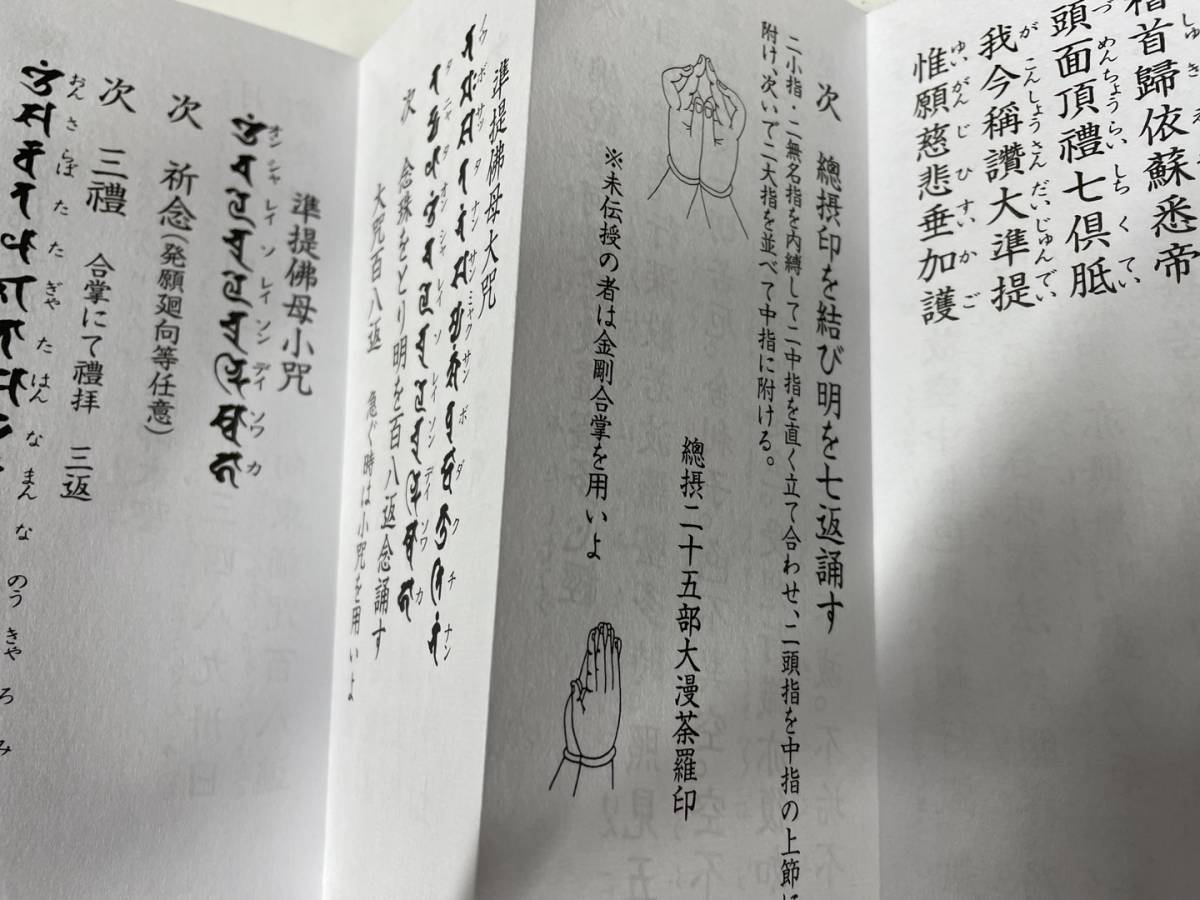 首歸依蘇悉帝
しゅ き え
頭面頂禮七倶胝
づ めんちょうらい しち く てい
我今稱讚大準提
が こんしょうさん だいじゅんでい
惟願慈悲垂加護
ゆいがん じ ひ すい か ご
次 總摂印を結び明を七返誦す
二小指・二無名指を内縛して二中指を直く立て合わせ、二頭指を中指の上節に
附け、次いで二大指を並べて中指に附ける。
總摂二十五部大漫荼羅印
※未伝授の者は金剛合掌を用いよ
準提佛母大咒
ノウ ボ サッ タ ナン サン ミャク サン ボ ダ ク チ ナン
タ ニャ タ オン シャ レイ ソ レイ ソン デイ ソワ カ
次 念珠をとり明を百八返念誦す
大咒百八返 急ぐ時は小咒を用いよ
準提佛母小咒
オン シャ レイ ソ レイ ソン デイ ソワ カ
次 祈念(発願廻向等任意)
次 三禮 合掌にて禮拝 三返
おん さ らば た た ぎゃ た はん な まん な のう きゃ ろ み